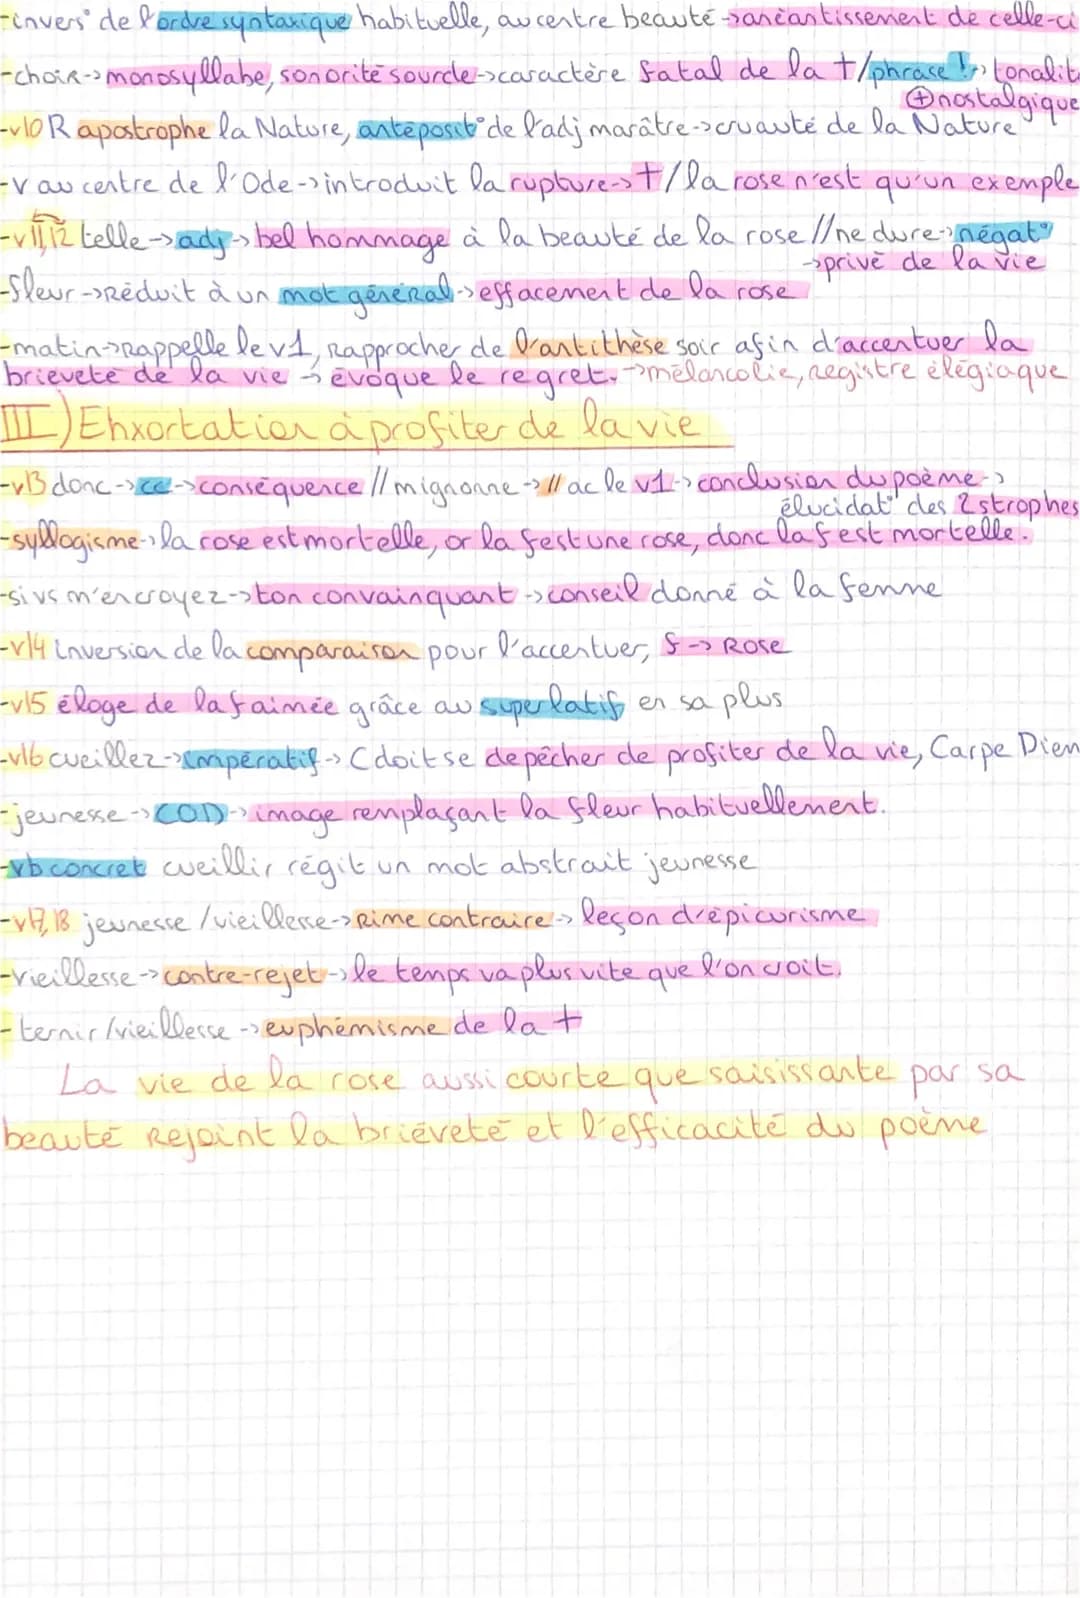 -invers° de l'ordre syntaxique habituelle, au centre beauté->anéantissement de celle-ci
-choir->monosyllabe, sonorité sourde->caractère fatal de la †/phrase !->tonalité
⊕nostalgique
-v10 R apostrophe la Nature, antéposit° de l'adj marâtre->cruauté de la Nature
-v au centre de l'Ode->introduit la rupture->†/la rose n'est qu'un exemple
-v11,12 telle->adj->bel hommage à la beauté de la rose//ne dure->négat°
->privé de la vie
-fleur->Réduit à un mot général->effacement de la rose
-matin->Rappelle le v1, Rapprocher de l'antithèse soir afin d'accentuer la
brieveté de la vie -> évoque le regret.->mélancolie, registre élégiaque
III) Ehxortation à profiter de la vie
-v13 donc->cc->conséquence//mignonne->// ac le v1->conclusion du poème->
élucidat° des 2 strophes
-syllogisme->la rose est mortelle, or la f est une rose, donc la f est mortelle.
-si vs m'en croyez->ton convainquant->conseil donné à la femme
-v14 inversion de la comparaison pour l'accentuer, f-> Rose
-v15 éloge de la f aimée grâce au superlatif en sa plus
-v16 cueillez->impératif-> C doit se depêcher de profiter de la vie, Carpe Diem
-jeunesse->COD->image remplaçant la fleur habituellement.
-vb concret cueillir régit un mot abstrait jeunesse
-v17,18 jeunesse/vieillesse->Rime contraire->leçon d'épicurisme
-vieillesse->contre-rejet->le temps va plus vite que l'on croit.
-ternir/vieillesse->euphémisme de la †
La vie de la rose aussi courte que saisissante par sa
beauté Rejoint la brièveté et l'efficacité du poème